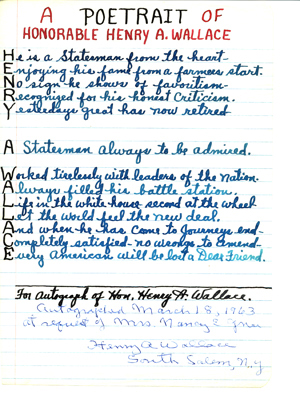 A POETRAIT OF
HONORABLE HENRY A. WALLACE
He is a Statesman from the heart-
Enjoying his fame from a farmers start.
No sign he shows of favoritism-
Recognized for his honest Criticism.
Yesterdays great has now retired
A Statesman always to be admired.
Worked tirelessly with leaders of the Nation.
Always filled his battle station.
Life in the white house second at the wheel
Let the world feel the new deal.
And when he has come to Journeys end-
Completely satisfied- no wrongs to amend-
Every American will be lost a Dear Friend.
For Autograph of Hon. Henry A. Wallace.
Autographed March 18, 1963
at request of Mrs. Nancy E.
Henry A Wallace
South Salem, N.Y